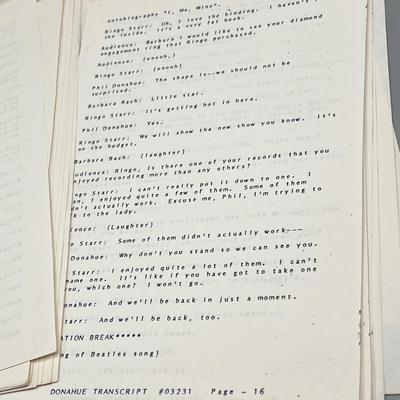 autobiography "I, Me, Mine".
Ringo Starr: Uh, I love the binding. I haven't
the inside. It's a very fat book.
Audience: Barbara I would like to see your diamond
engagement ring that Ringo purchased.
Audience: (ooooh,)
Ringo Starr: (ooooh)
Phil Donahue: The shape is--we should not be
surprised.
Barbara Bach: Little star.
Ringo Starr: It's getting hot in here.
Phil Donahue: Yes.
Ringo Starr: We will show the new show you know. It's
on the budget.
Barbara Bach: (laughter)
udience: Ringo, is there one of your records that you
njoyed recording more than any others?
ngo Starr: I can't really put it down to one. I
an, I enjoyed quite a few of them. Some of them
dn't actually work. Excuse me, Phil, I'm trying to
k to the lady.
ience: (Laughter)
o Starr: Some of them didn't actually work---
Donahue: Why don't you stand so we can see you.
Starr: I enjoyed quite a lot of them. I can't
name one. It's like if you have got to take one
you, which one? I won't go.
onahue: And we'll be back in just a moment.
tarr: And we'll be back, too.
ATION BREAK*****
ng of Beatles song)
DONAHUE TRANSCRIPT #03231 Page - 16